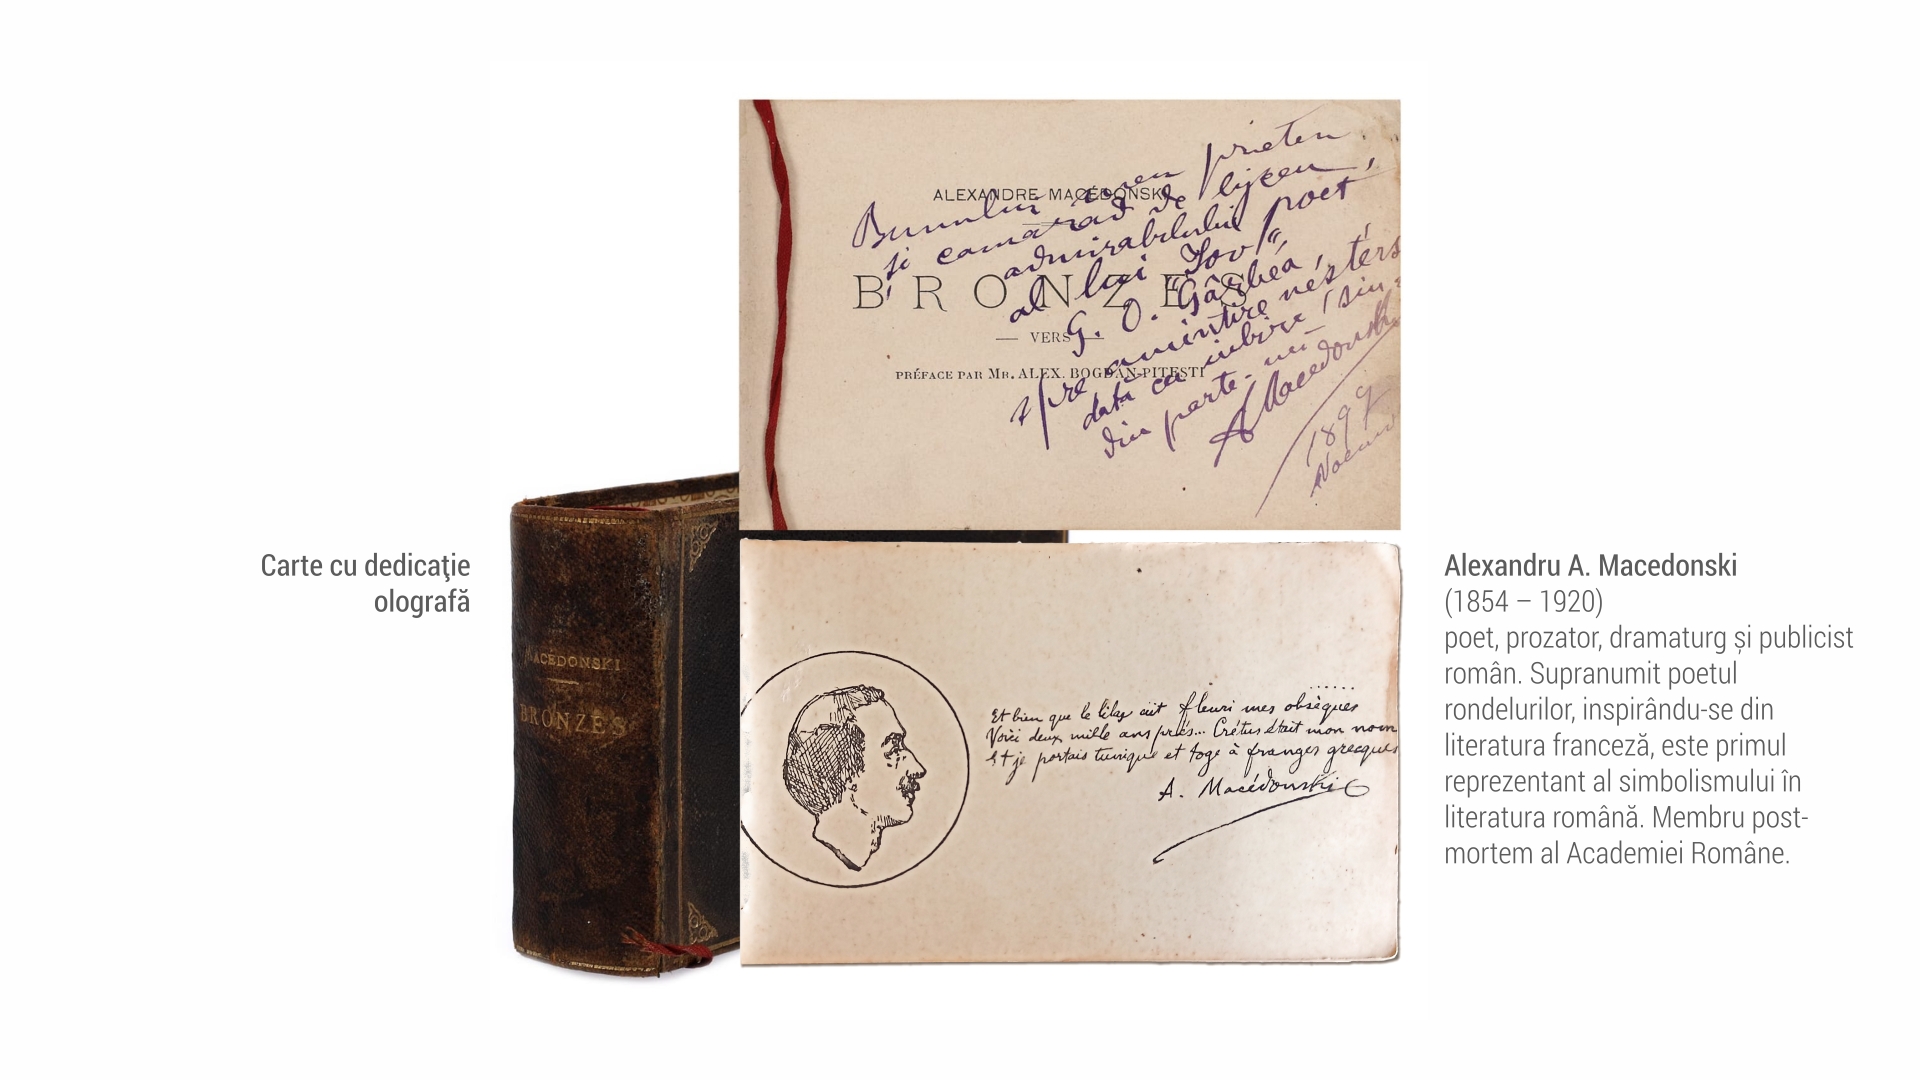 Carte cu dedicaţie
olografă
MACEDONSKI
BRONZES
ALEXANDRE MACEDONSKI
BRONZES
VERS
PRÉFACE PAR Mr. ALEX. BOGDAN-PITEȘTI
Bunului meu prieten
și camarad de lyceu,
admirabilului poet
al lui "Iov",
G. O. Gârbea,
spre amintire neșters
data cu iubire
din parte-mi
A Macedonski
1899
Et bien que le lilas eût fleuri mes obsèques
Voici deux mille ans près... Crétus était mon nom
Et je portais tunique et toge à franges grecques
A. Macédonski
Alexandru A. Macedonski
(1854 – 1920)
poet, prozator, dramaturg și publicist
român. Supranumit poetul
rondelurilor, inspirându-se din
literatura franceză, este primul
reprezentant al simbolismului în
literatura română. Membru post-
mortem al Academiei Române.